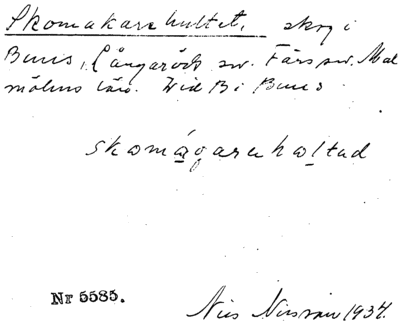 Skomakarehultet, skog i
Buus, Långaröds sn. Färs sn. Mal
möhus län. Vid Bi Buus
skomagarehaltad
Nr 5585.
Nils Nilsson 1934.